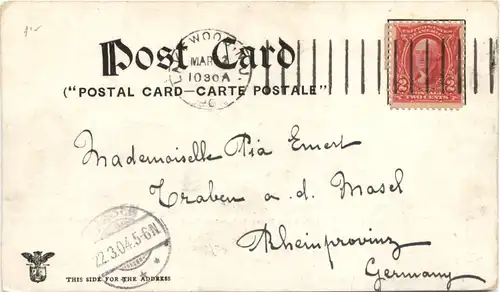 Post Card
MAR
1030A
("POSTAL CARD—CARTE POSTALE")
2 2
TWO CENTS
Mademoiselle Pia Emert
Traben a. d. Mosel
22.3.04.5-6N
Rheinprovinz
Germany
THIS SIDE FOR THE ADDRESS